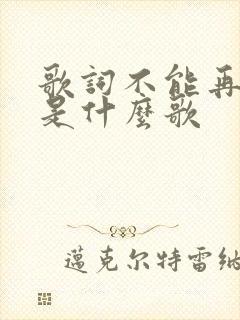 歌詞不能再
是什麼歌
邁克尔特雷納